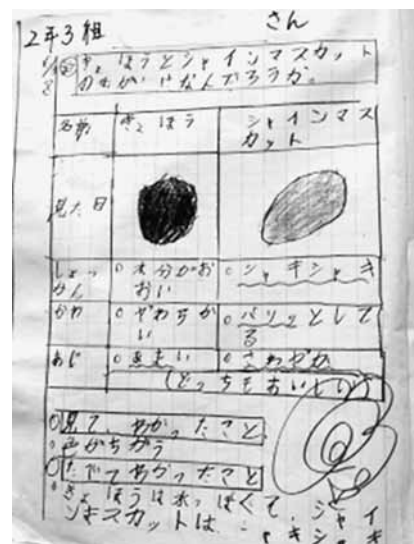 2年3組 さん
きょほうとシャインマスカット
のちがいはなんだろうか。
名前 きょほう シャインマスカット
見た目
しょっかん 水分がおおい シャキシャキ
かわ やわらかい パリッとしてる
あじ あまい さわやか
(どっちもおいしい)
見て、わかったこと
色がちがう
たべてわかったこと
きょほうは水っぽくて、シャイ
ンマスカットは シャキシャキ